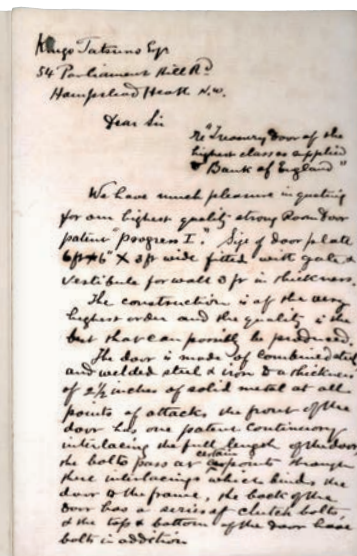 Kingo Tatsuno Esqr
54 Parliament Hill Rd
Hampstead Heath N.W.
Dear Sir
re "Treasury Door of the
highest class as applied
Bank of England"
We have much pleasure in quoting
for our highest quality strong Room Door
patent "Progress I." Size of door plate
6ft 6" X 3ft wide fitted with gate &
vestibule for wall 3 ft in thickness.
The construction is of the very
highest order and the quality is the
best that can possibly be produced.
The door is made of combined steel
and welded steel & iron to a thickness
of 2½ inches of solid metal at all
points of attacks the front of the
door has one patent continuous
interlacing the full length of the door
the bolts pass at certain points through
these interlacings which binds the
door to the frame, the back of the
door has a series of clutch bolts,
& the top & bottom of the door have
bolts in addition